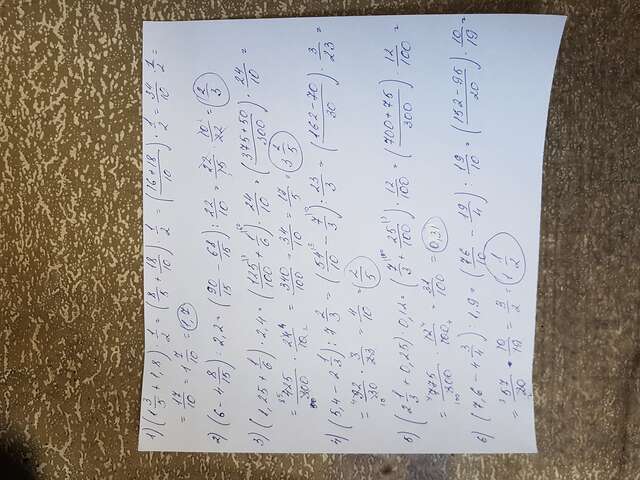 1) (1 3/5 + 1,8) · 1/2 = (8/5 + 18/10) · 1/2 = ((16+18)/10) · 1/2 = 34/10 · 1/2 =
= 17/10 = 1 7/10 = 1,7
2) (6 - 4 8/15) : 2,2 = (90/15 - 68/15) : 22/10 = 22/15 · 10/22 = 2/3
3) (1,25 + 1/6) · 2,4 = (125/100 + 1/6) · 24/10 = ((375+50)/300) · 24/10 =
= 425/300 · 24/10 = 340/100 = 34/10 = 17/5 = 3 2/5
4) (5,4 - 2 1/3) : 7 2/3 = (54/10 - 7/3) : 23/3 = ((162-70)/30) · 3/23 =
= 92/30 · 3/23 = 4/10 = 2/5
5) (2 1/3 + 0,25) · 0,12 = (7/3 + 25/100) · 12/100 = ((700+75)/300) · 12/100 =
= 775/300 · 12/100 = 31/100 = 0,31
6) (7,6 - 4 3/4) : 1,9 = (76/10 - 19/4) : 19/10 = ((152-95)/20) · 10/19 =
= 57/20 · 10/19 = 3/2 = 1 1/2